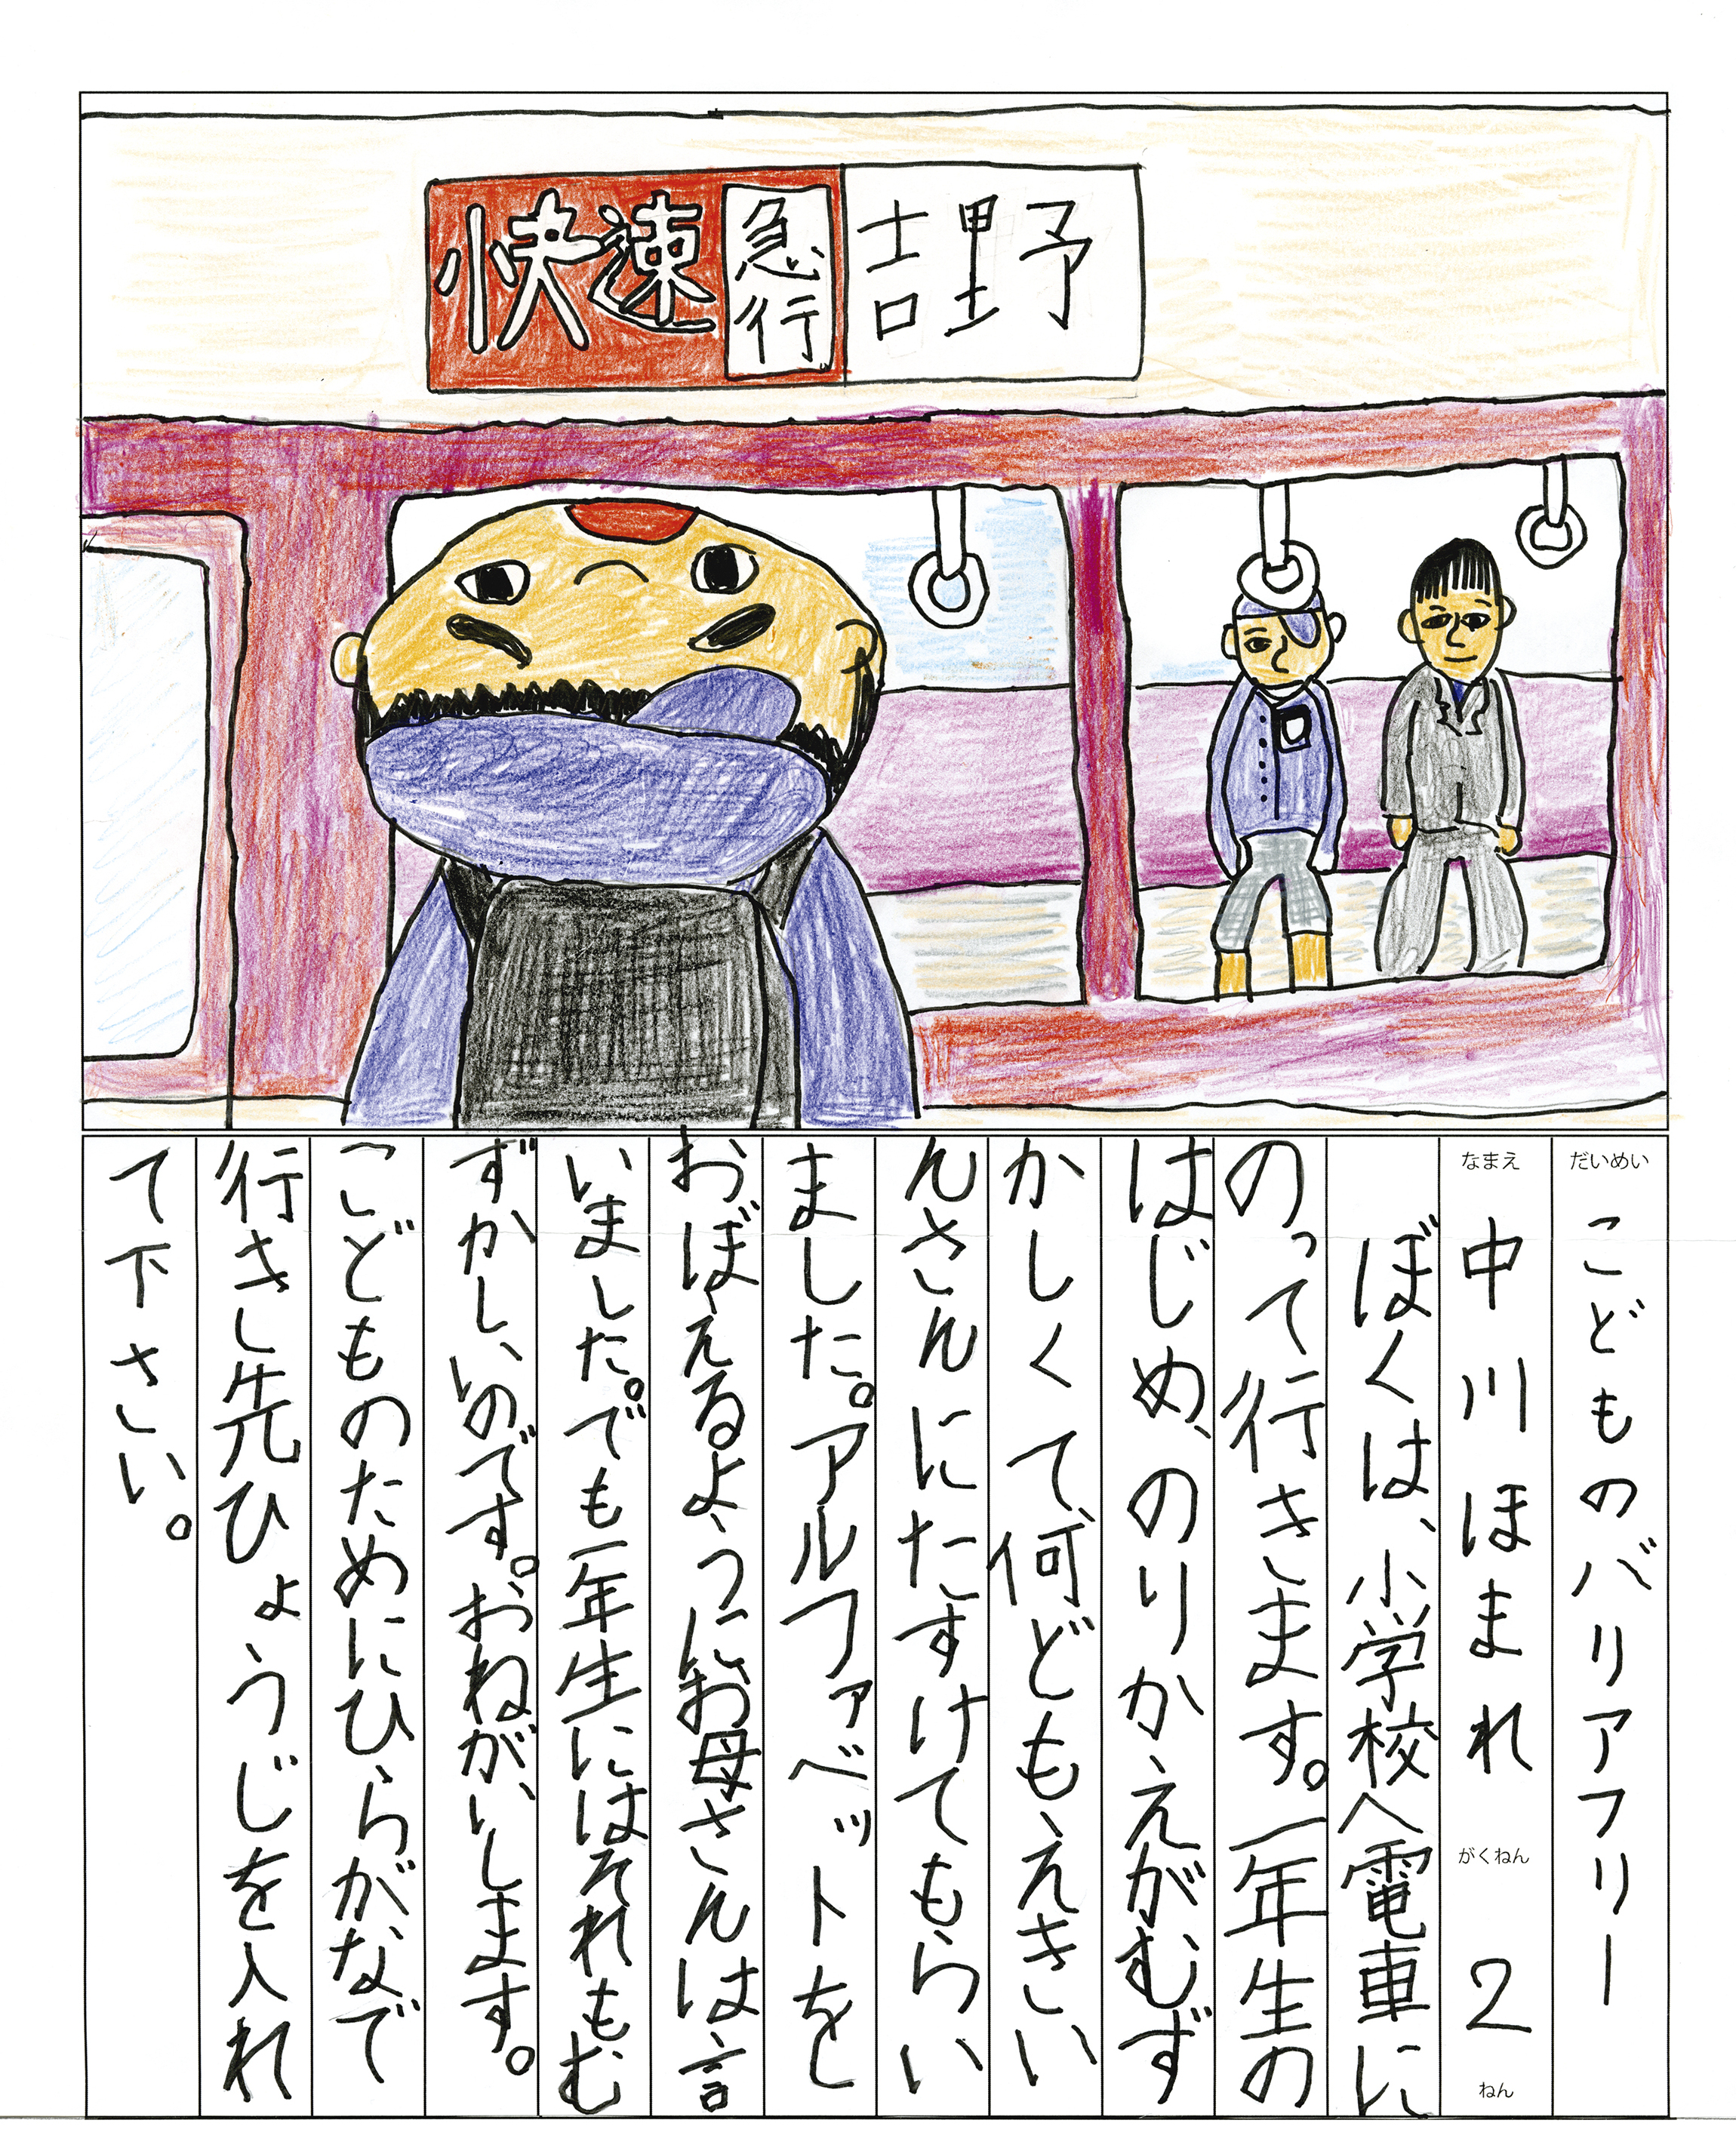 快速急行吉野
だいめい こどものバリアフリー
なまえ 中川ほまれ がくねん 2 ねん
ぼくは、小学校へ電車に
のって行きます。一年生の
はじめ、のりかえがむず
かしくて、何どもえきい
んさんにたすけてもらい
ました。アルファベットを
おぼえるようにお母さんは言
いました。でも一年生にはそれもむ
ずかしいのです。おねがいします。
こどものためにひらがなで
行きし先ひょうじを入れ
て下さい。